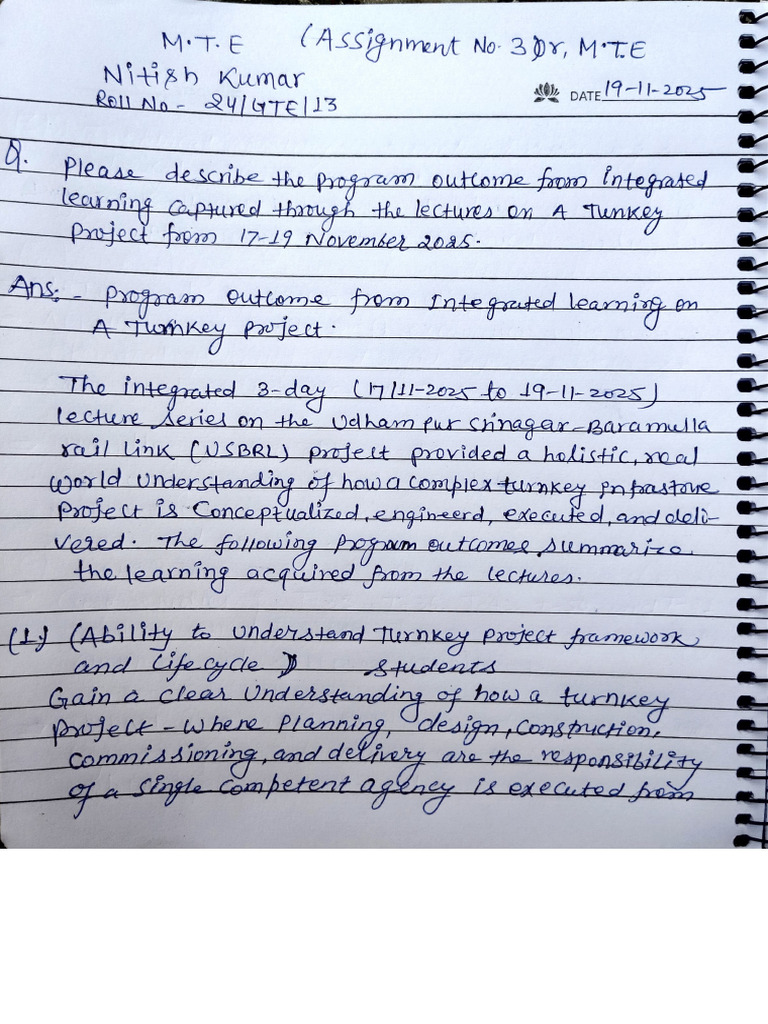 M.T.E (Assignment No. 3) Dr, M.T.E
Nitish Kumar
Roll No - 24/GTE/13
DATE 19-11-2025
Q. Please describe the program outcome from integrated
learning captured through the lectures on A Tunkey
Project from 17-19 November 2025.
Ans: - Program outcome from Integrated learning on
A Turnkey Project.
The integrated 3-day (17/11-2025 to 19-11-2025)
lecture series on the Udhampur Srinagar-Baramulla
rail link (USBRL) project provided a holistic, real
world understanding of how a complex turnkey
Project is conceptualized, engineerd, executed, and deli-
vered. The following program outcomes summarize
the learning acquired from the lectures.
(1.) (Ability to understand Turnkey project framework
and Lifecycle) students
Gain a clear understanding of how a turnkey
project - where planning, design, construction,
commissioning, and delivery are the responsibility
of a single competent agency is executed from